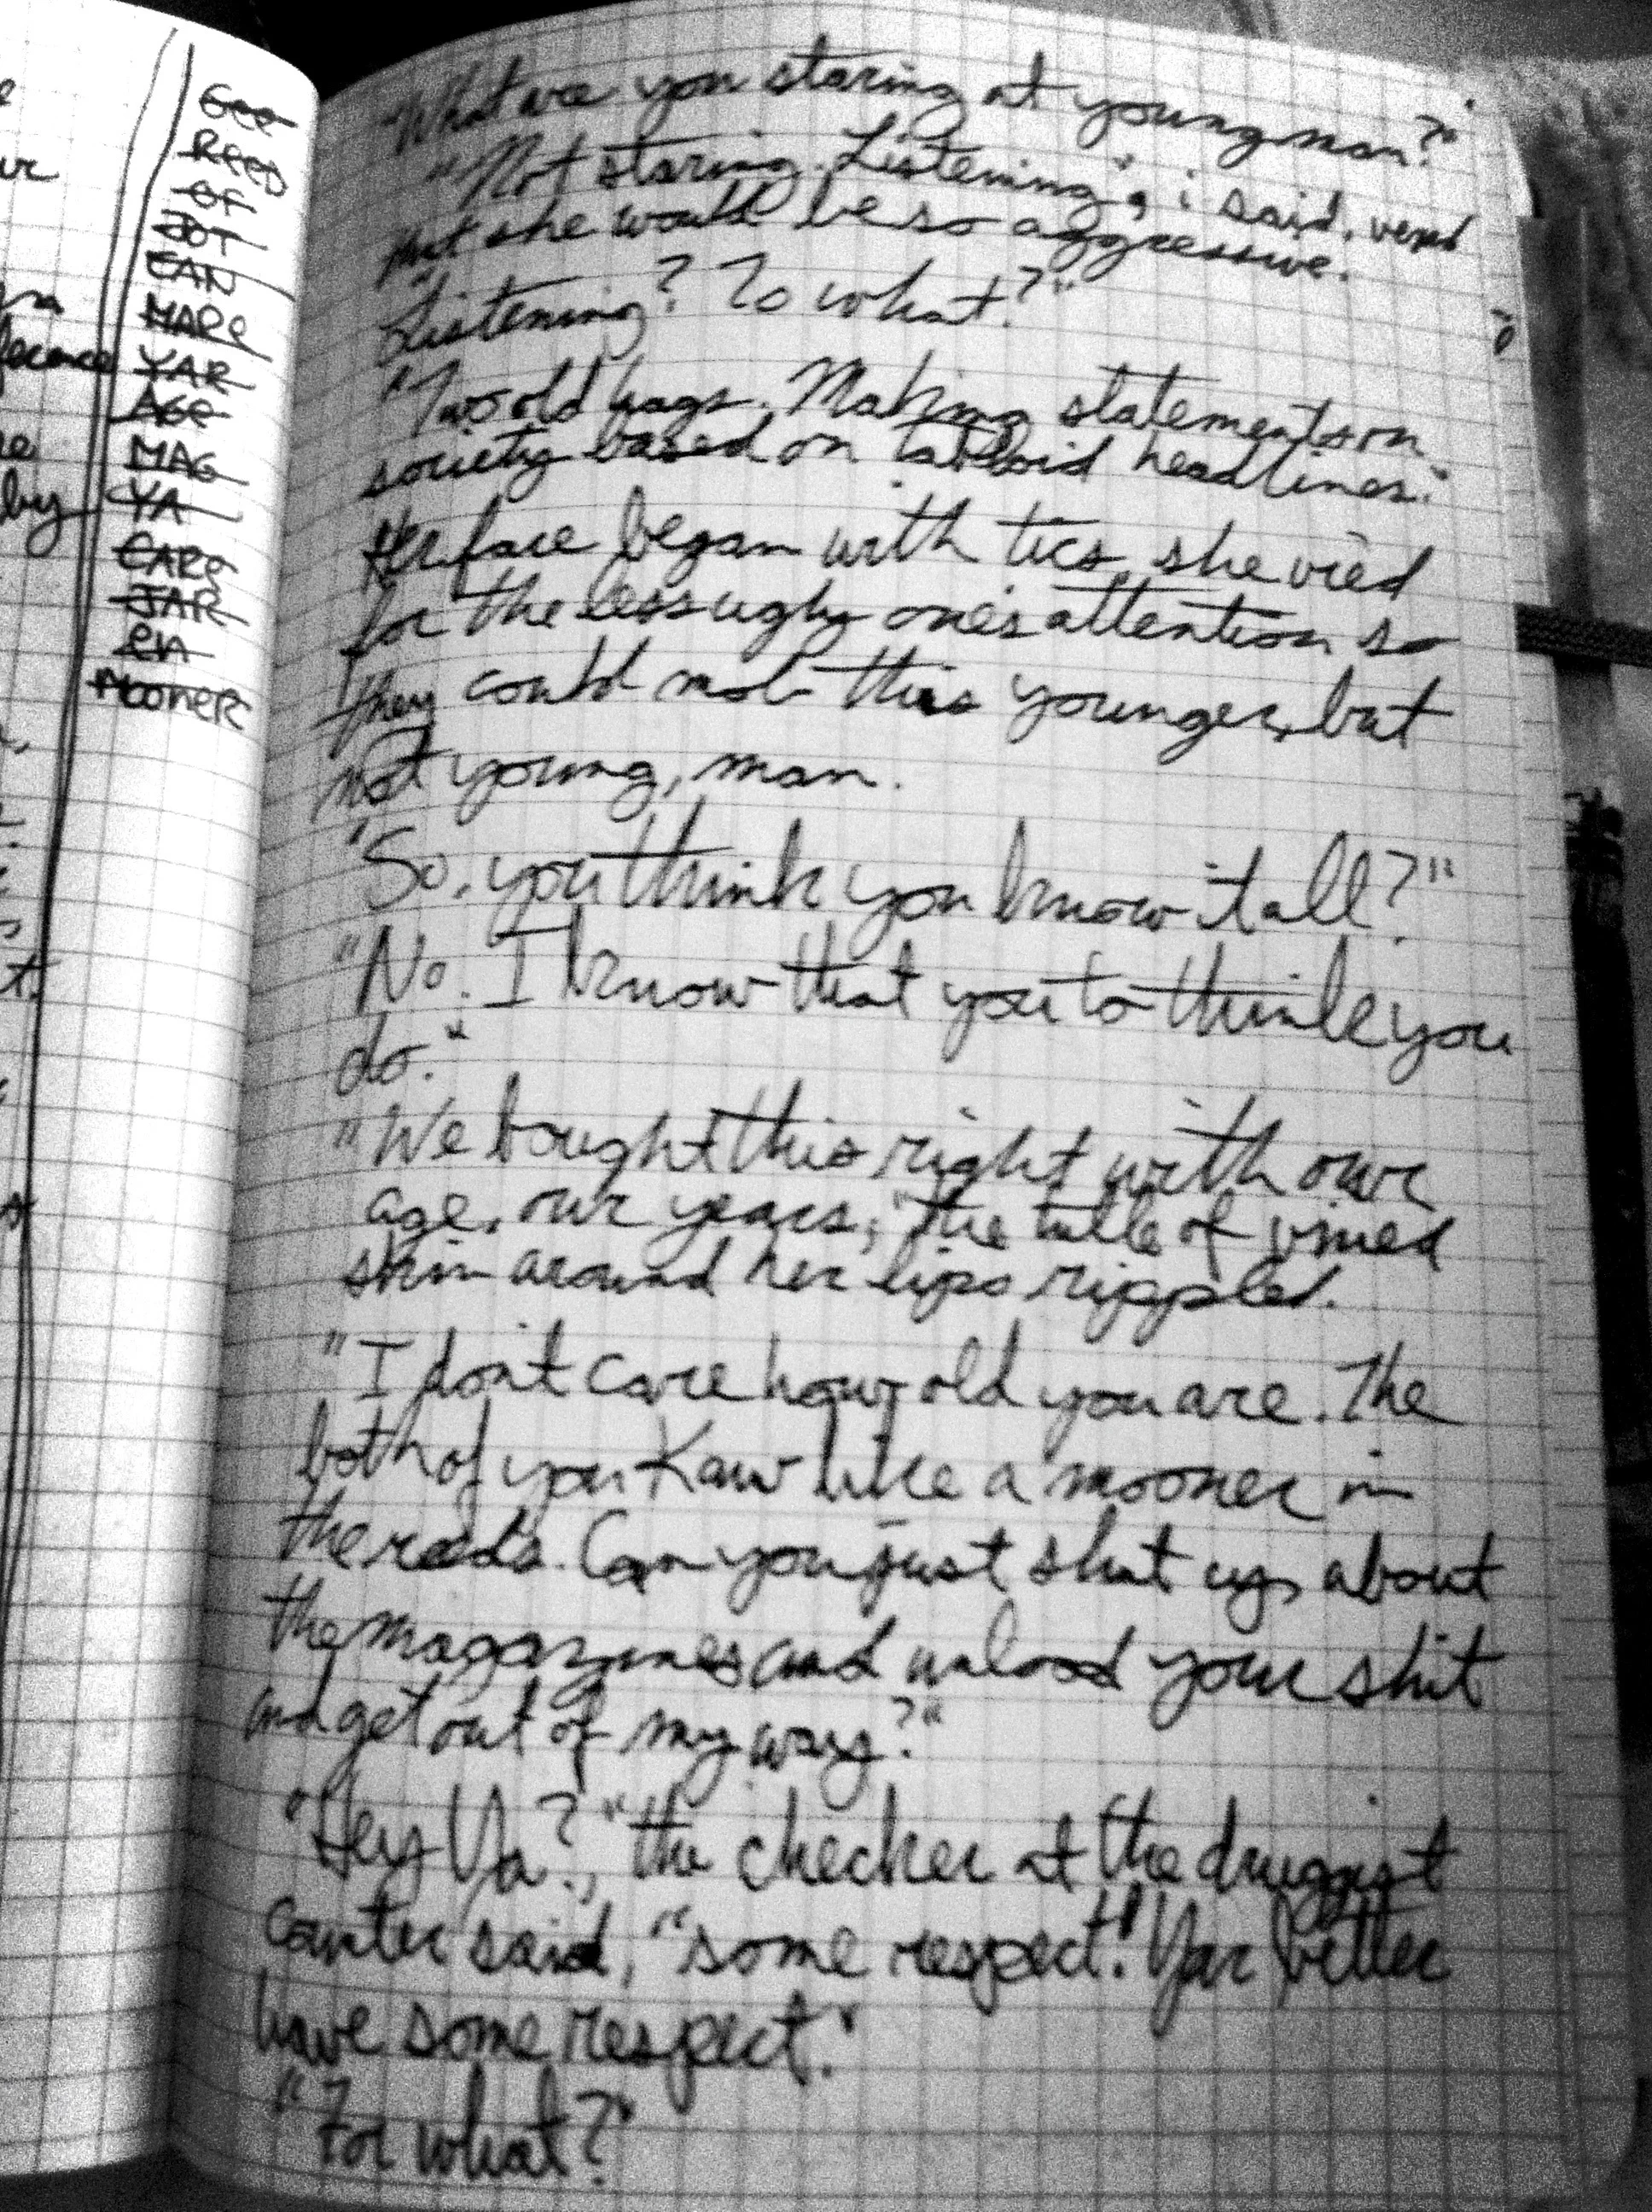 See
Reed
of
JOT
CAN
MARE
YAR
AGE
MAG
YA
CARe
JAR
en
Mooner
by
"What are you staring at young man?"
"Not staring. Listening", i said, vexed
that she would be so aggressive.
"Listening? To what?"
"Two old hags. Making statements on
society based on tabloid headlines."
Her face began with tics, she vied
for the less ugly one's attention so
they could mob this younger, but
not young, man.
"So, you think you know it all?"
"No. I know that you to think you
do."
"We bought this right with our
age, our years," the tulle of vined
skin around her lips rippled.
"I don't care how old you are. The
both of you Kaw like a mooner in
the reeds. Can you just shut up about
the magazines and unload your shit
and get out of my way?"
"Hey Ya?," the checker at the druggist
counter said, "some respect." Yar better
have some respect."
"For what?"